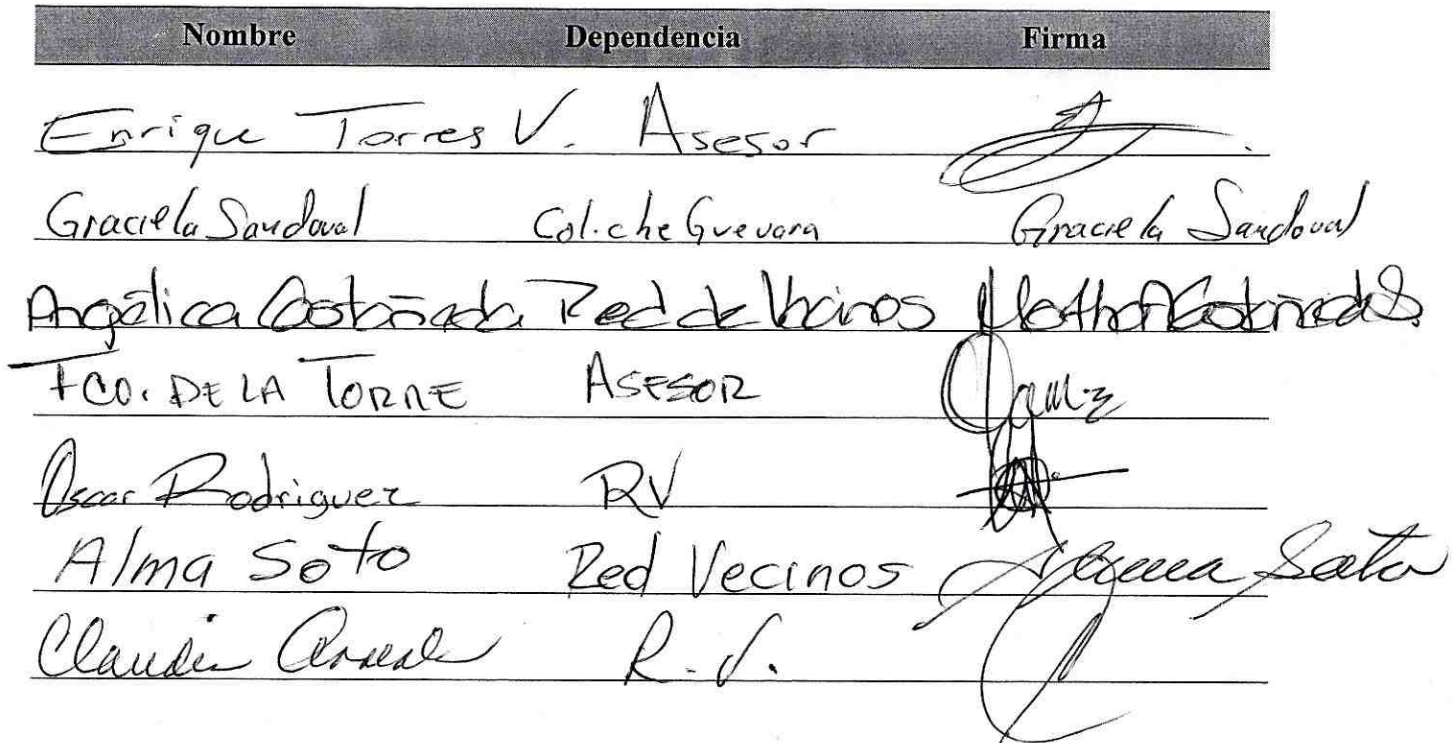 Nombre Dependencia Firma
Enrique Torres V. Asesor
Graciela Sandoval Col. che Guevara Graciela Sandoval
Angélica Castañeda Red de Vecinos Martha Castañeda S.
Fco. DE LA TORRE ASESOR
Oscar Rodriguez RV
Alma Soto Red Vecinos Alma Soto
Claudia R.V.